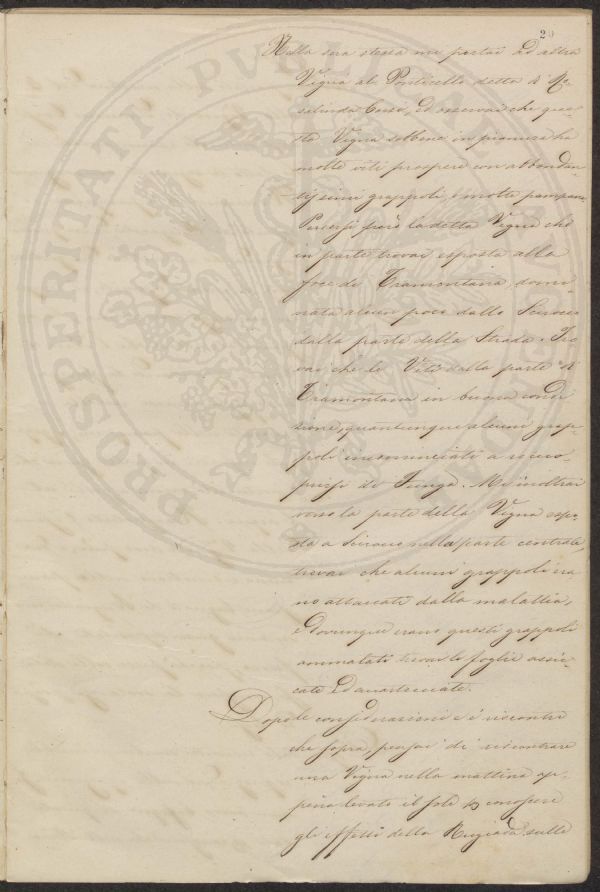 20
Nella sera stessa mi portai ad altra
Vigna al Ponticello detta di
, ed osservai che que-
sta Vigna sebbene in pianura ha
molte viti prospere con abbondan-
tissimi grappoli, e molte pampane
Persersi però la detta Vigna che
in parte trovai esposta alla
foce di Tramontana, domi
nata alcun poco dallo Scirocco
dalla parte della Strada. Tro
vai che le Viti dalla parte di
Tramontana in buona condi
zione, quantunque alcuni grap-
poli incominciati a
di Funga. M'inoltrai
verso la parte della Vigna espo-
sta a Scirocco nella parte centrale,
trovai che alcuni grappoli era
no attaccati dalla malattia,
e dovunque erano questi grappoli
ammalati trovai le foglie assic-
cate ed accartocciate.
Dopo le considerazioni e i riscontri
che sopra, pensai di riscontrare
una Vigna nella mattina ap-
pena levato il sole conoscere
gli effetti della Rugiada sulle
PROSPERITATI PUBLICAE AUGENDAE